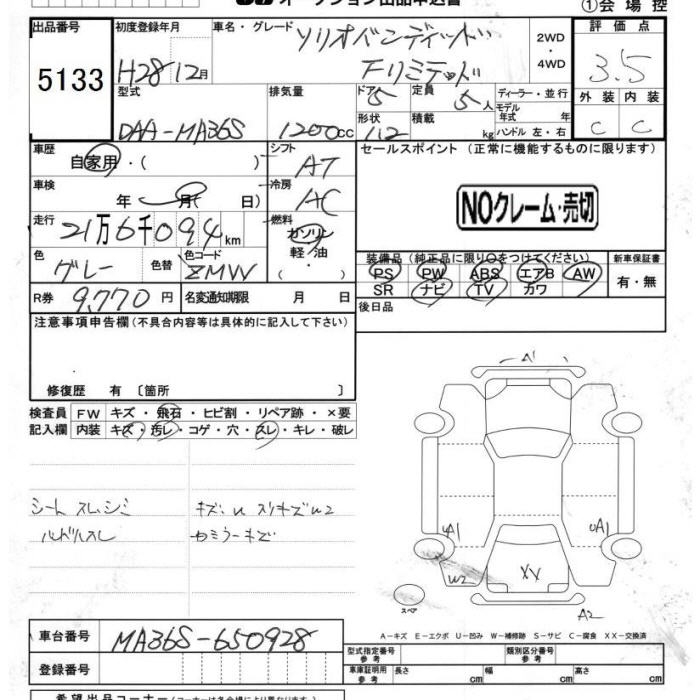 オークション出品申込書
①会場控
出品番号 初度登録年月 車名・グレード ソリオバンディット 2WD 評価点
5133 H28 12月 Fリミテッド 4WD 3.5
型式 排気量 ドア 5 定員 5人 ディーラー・並行 外装 内装
DAA-MA36S 1200cc 形状 積載 kg モデル年式 年 ハンドル 左・右 C C
車歴 自家用・( ) シフト AT セールスポイント (正常に機能するものに限ります)
車検 年 月( 日) 冷房 AC NOクレーム・売切
走行 21万6千094km 燃料 ガソリン 軽油
色 グレー 色替 色コード ZMW 装備品(純正品に限り○をつけてください) 新車保証書
PS PW ABS エアB AW 有・無
SR ナビ TV カワ
R券 9,770円 名変通知期限 月 日 後日品
注意事項申告欄(不具合内容等は具体的に記入して下さい)
修復歴 有 〔箇所 〕
検査員 FW キズ・飛石・ヒビ割・リペア跡・×要
記入欄 内装 キズ・汚レ・コゲ・穴・スレ・キレ・破レ
シート スレ、シミ キズ、U スリキズW2
ハンドルスレ カミラーキズ
A1
A1
UA1
W2
XX
A2
スペア
A-キズ E-エクボ U-凹み W-補修跡 S-サビ C-腐食 XX-交換済
車台番号 MA36S-650928
型式指定番号 参考 類別区分番号 参考
登録番号
車庫証明用 参考 長さ cm 幅 cm 高さ cm
希望出品コーナー